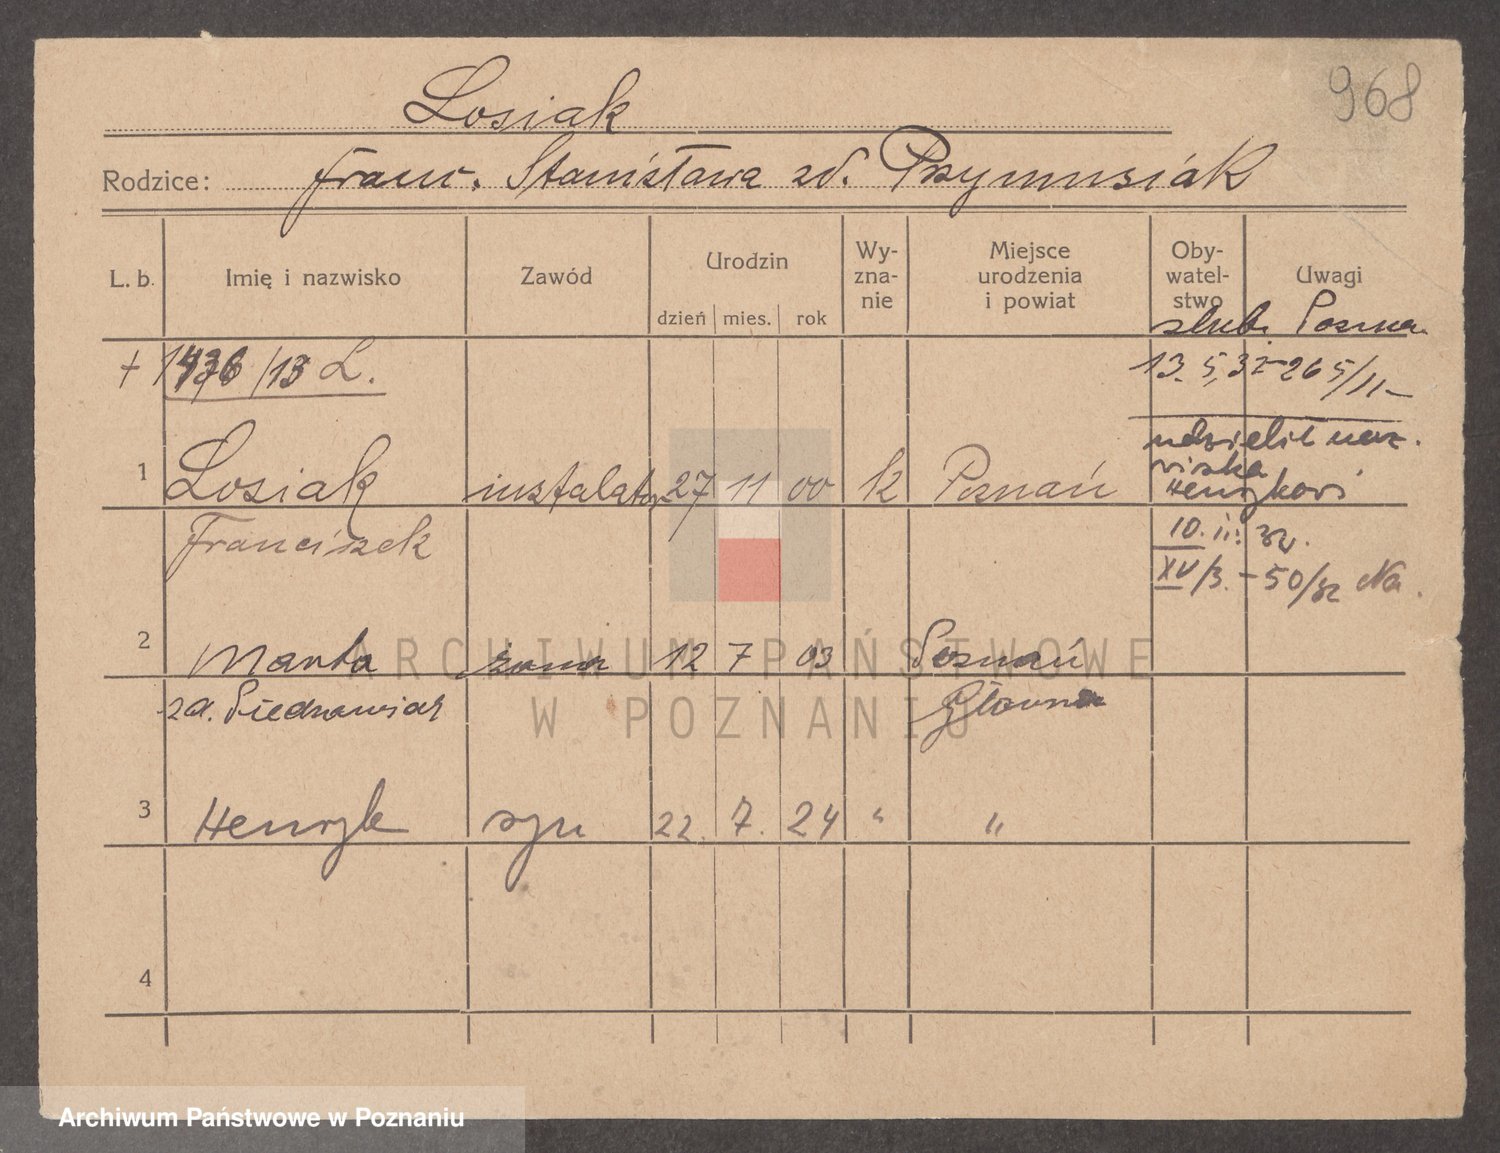 968
Losiak
Rodzice: Franc. Stanisława zd. Przymusiak
L. b. Imię i nazwisko Zawód Urodzin dzień mies. rok Wy-zna-nie Miejsce urodzenia i powiat Oby-watel-stwo Uwagi
ślub. Pozna.
13. 5. 32 - 265/11-
1 Losiak instalator 27 11 00 k Poznań
Franciszek
udzielił naz.
wiska
Henrykowi
10. 11. 32.
XV/3. - 50/32 Na.
2 Marta żona 12 7 03 Poznań
zd. Główna
3 Henryk syn 22. 7. 24 " "
4
ARCHIWUM PAŃSTWOWE
W POZNANIU
Archiwum Państwowe w Poznaniu